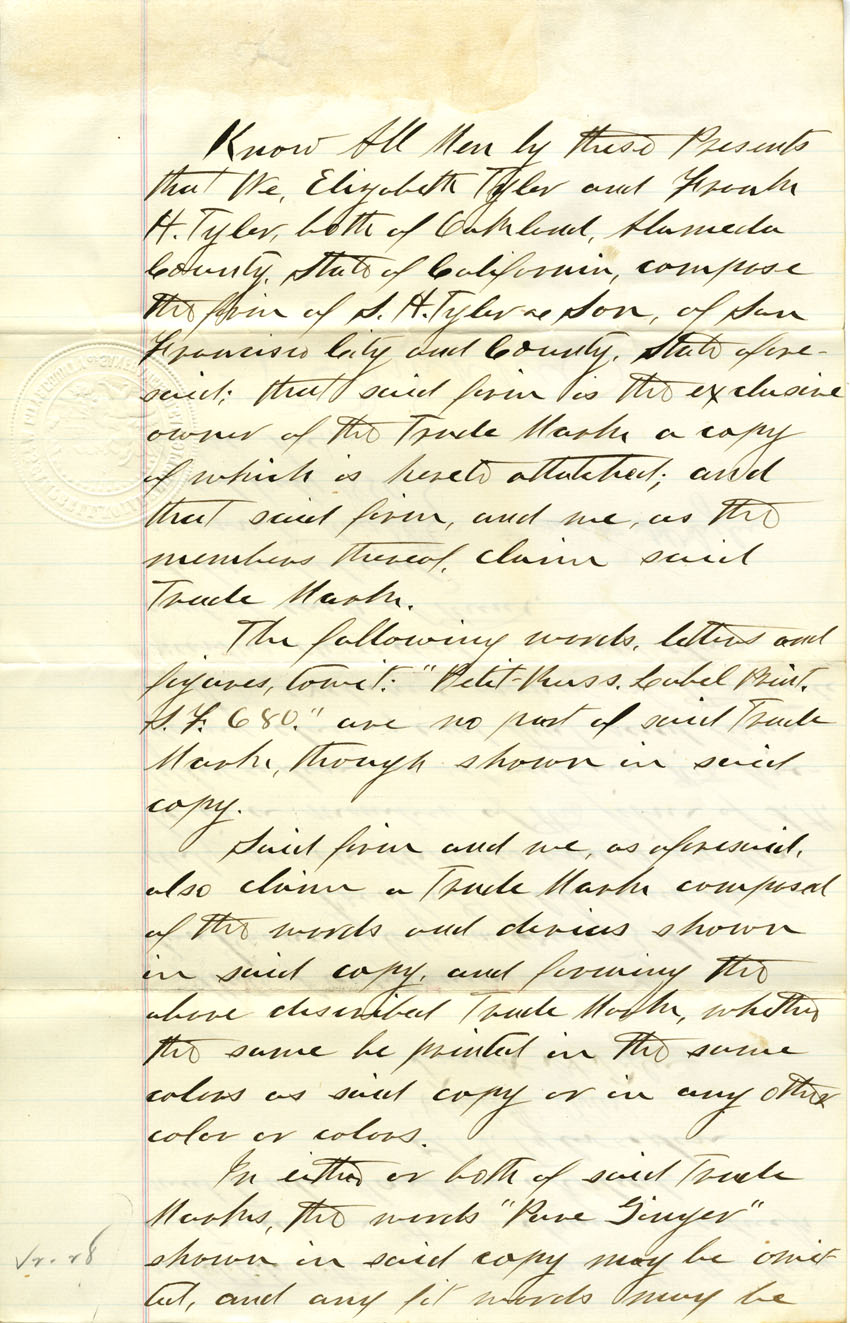 Know All Men by these Presents
that We, Elizabeth Tyler and Frank
H. Tyler, both of Oakland, Alameda
County, State of California, compose
the firm of S. H. Tyler & Son, of San
Francisco City and County, State afore-
said; that said firm is the exclusive
owner of the Trade Mark a copy
of which is hereto attatched; and
that said firm, and we, as the
members thereof, claim said
Trade Mark.
The following words, letters and
figures, towit: "Petit-Russ. Label Print.
S. F. 680." are no part of said Trade
Mark, though shown in said
copy.
Said firm and we, as aforesaid,
also claim a Trade Mark composed
of the words and devices shown
in said copy, and forming the
above described Trade Mark, whether
the same be printed in the same
colors as said copy or in any other
color or colors.
In either or both of said Trade
Marks, the words "Pure Ginger"
shown in said copy may be omit-
ted, and any fit words may be